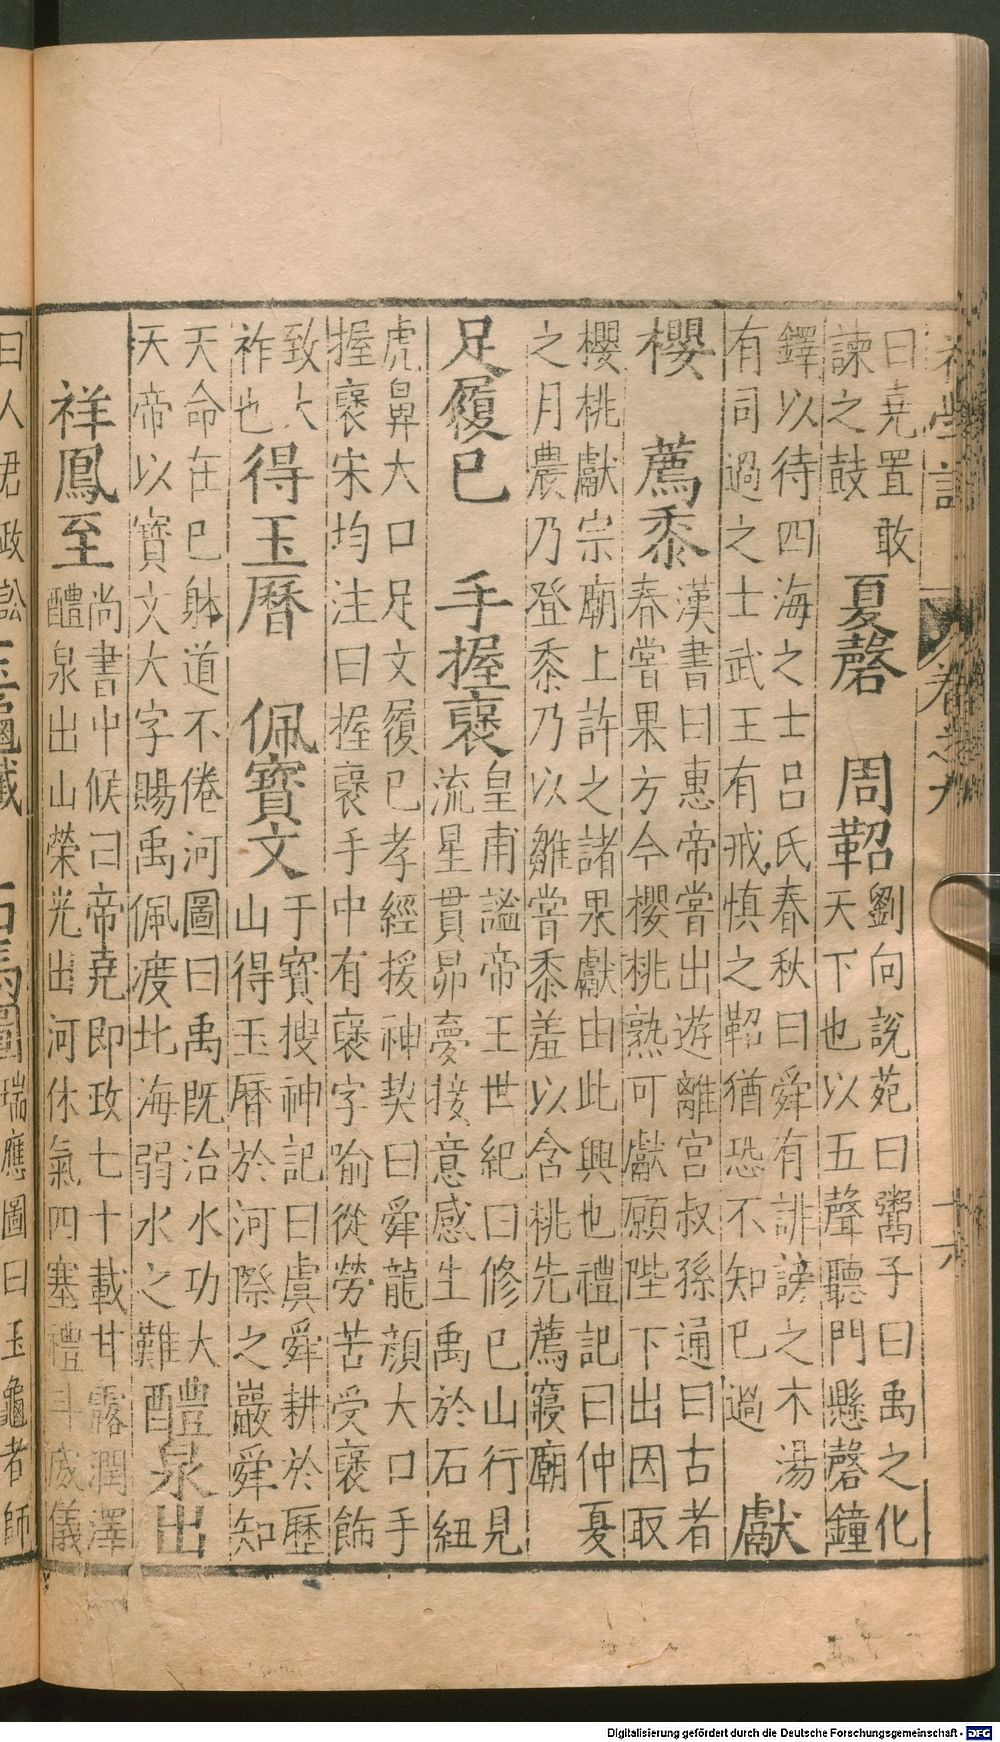 初學記 卷之九 十六
曰堯置敢
諫之鼓
夏磬 周鞀
劉向說苑曰鬻子曰禹之化
天下也以五聲聽門懸磬鐘
鐸以待四海之士呂氏春秋曰舜有誹謗之木湯
有司過之士武王有戒慎之鞀猶恐不知已過
獻
櫻 薦黍
漢書曰惠帝嘗出遊離宮叔孫通曰古者
春嘗果方今櫻桃熟可獻願陛下出因取
櫻桃獻宗廟上許之諸果獻由此興也禮記曰仲夏
之月農乃登黍乃以雛嘗黍羞以含桃先薦寢廟
足履已 手握襃
皇甫謐帝王世紀曰修已山行見
流星貫昴夢接意感生禹於石紐
虎鼻大口足文履已孝經援神契曰舜龍顔大口手
握襃宋均注曰握襃手中有襃字喻從勞苦受襃飾
致大
祚也
得玉曆 佩寶文
于寶搜神記曰虞舜耕於歷
山得玉曆於河際之巖舜知
天命在已躰道不倦河圖曰禹既治水功大
天帝以寶文大字賜禹佩渡北海弱水之難
醴泉出
祥鳳至
尚書中候曰帝堯即政七十載甘露潤澤
醴泉出山榮光出河休氣四塞禮斗威儀
曰人君政訟
玉龜
瑞應圖曰玉龜者師
Digitalisierung gefördert durch die Deutsche Forschungsgemeinschaft - DFG